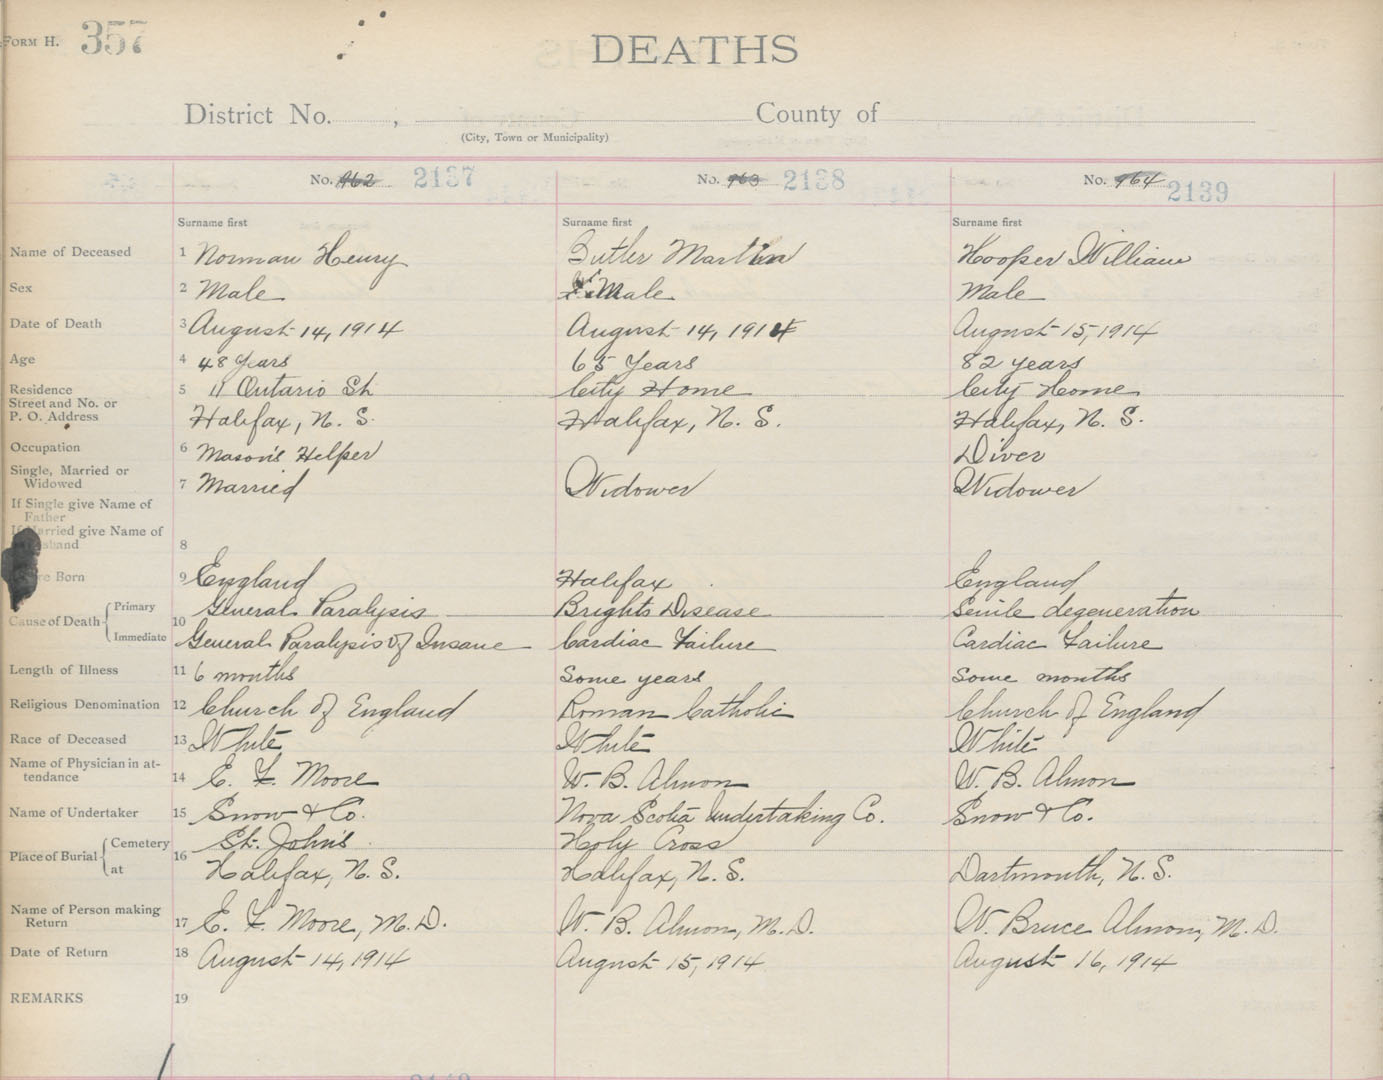 FORM H. 357
DEATHS
District No. , County of
(City, Town or Municipality)
No. 962 2137 No. 963 2138 No. 964 2139
Surname first Surname first Surname first
Name of Deceased 1 Norman Henry Butler Martin Hooper William
Sex 2 Male Male Male
Date of Death 3 August 14, 1914 August 14, 1914 August 15, 1914
Age 4 48 Years 65 Years 82 years
Residence 5 11 Ontario St. City Home City Home
Street and No. or
P. O. Address Halifax, N. S. Halifax, N. S. Halifax, N. S.
Occupation 6 Mason's Helper Diver
Single, Married or
Widowed 7 Married Widower Widower
If Single give Name of
Father
If Married give Name of
8
Born 9 England Halifax England
Cause of Death Primary 10 General Paralysis Brights Disease Senile degeneration
Immediate General Paralysis of Insane Cardiac Failure Cardiac Failure
Length of Illness 11 6 months Some years Some months
Religious Denomination 12 Church of England Roman Catholic Church of England
Race of Deceased 13 White White White
Name of Physician in at-
tendance 14 E. F. Moore W. B. Almon W. B. Almon
Name of Undertaker 15 Snow & Co. Nova Scotia Undertaking Co. Snow & Co.
Place of Burial Cemetery 16 St. John's Holy Cross
at Halifax, N. S. Halifax, N. S. Dartmouth, N. S.
Name of Person making
Return 17 E. F. Moore, M. D. W. B. Almon, M. D. W. Bruce Almon, M. D.
Date of Return 18 August 14, 1914 August 15, 1914 August 16, 1914
REMARKS 19